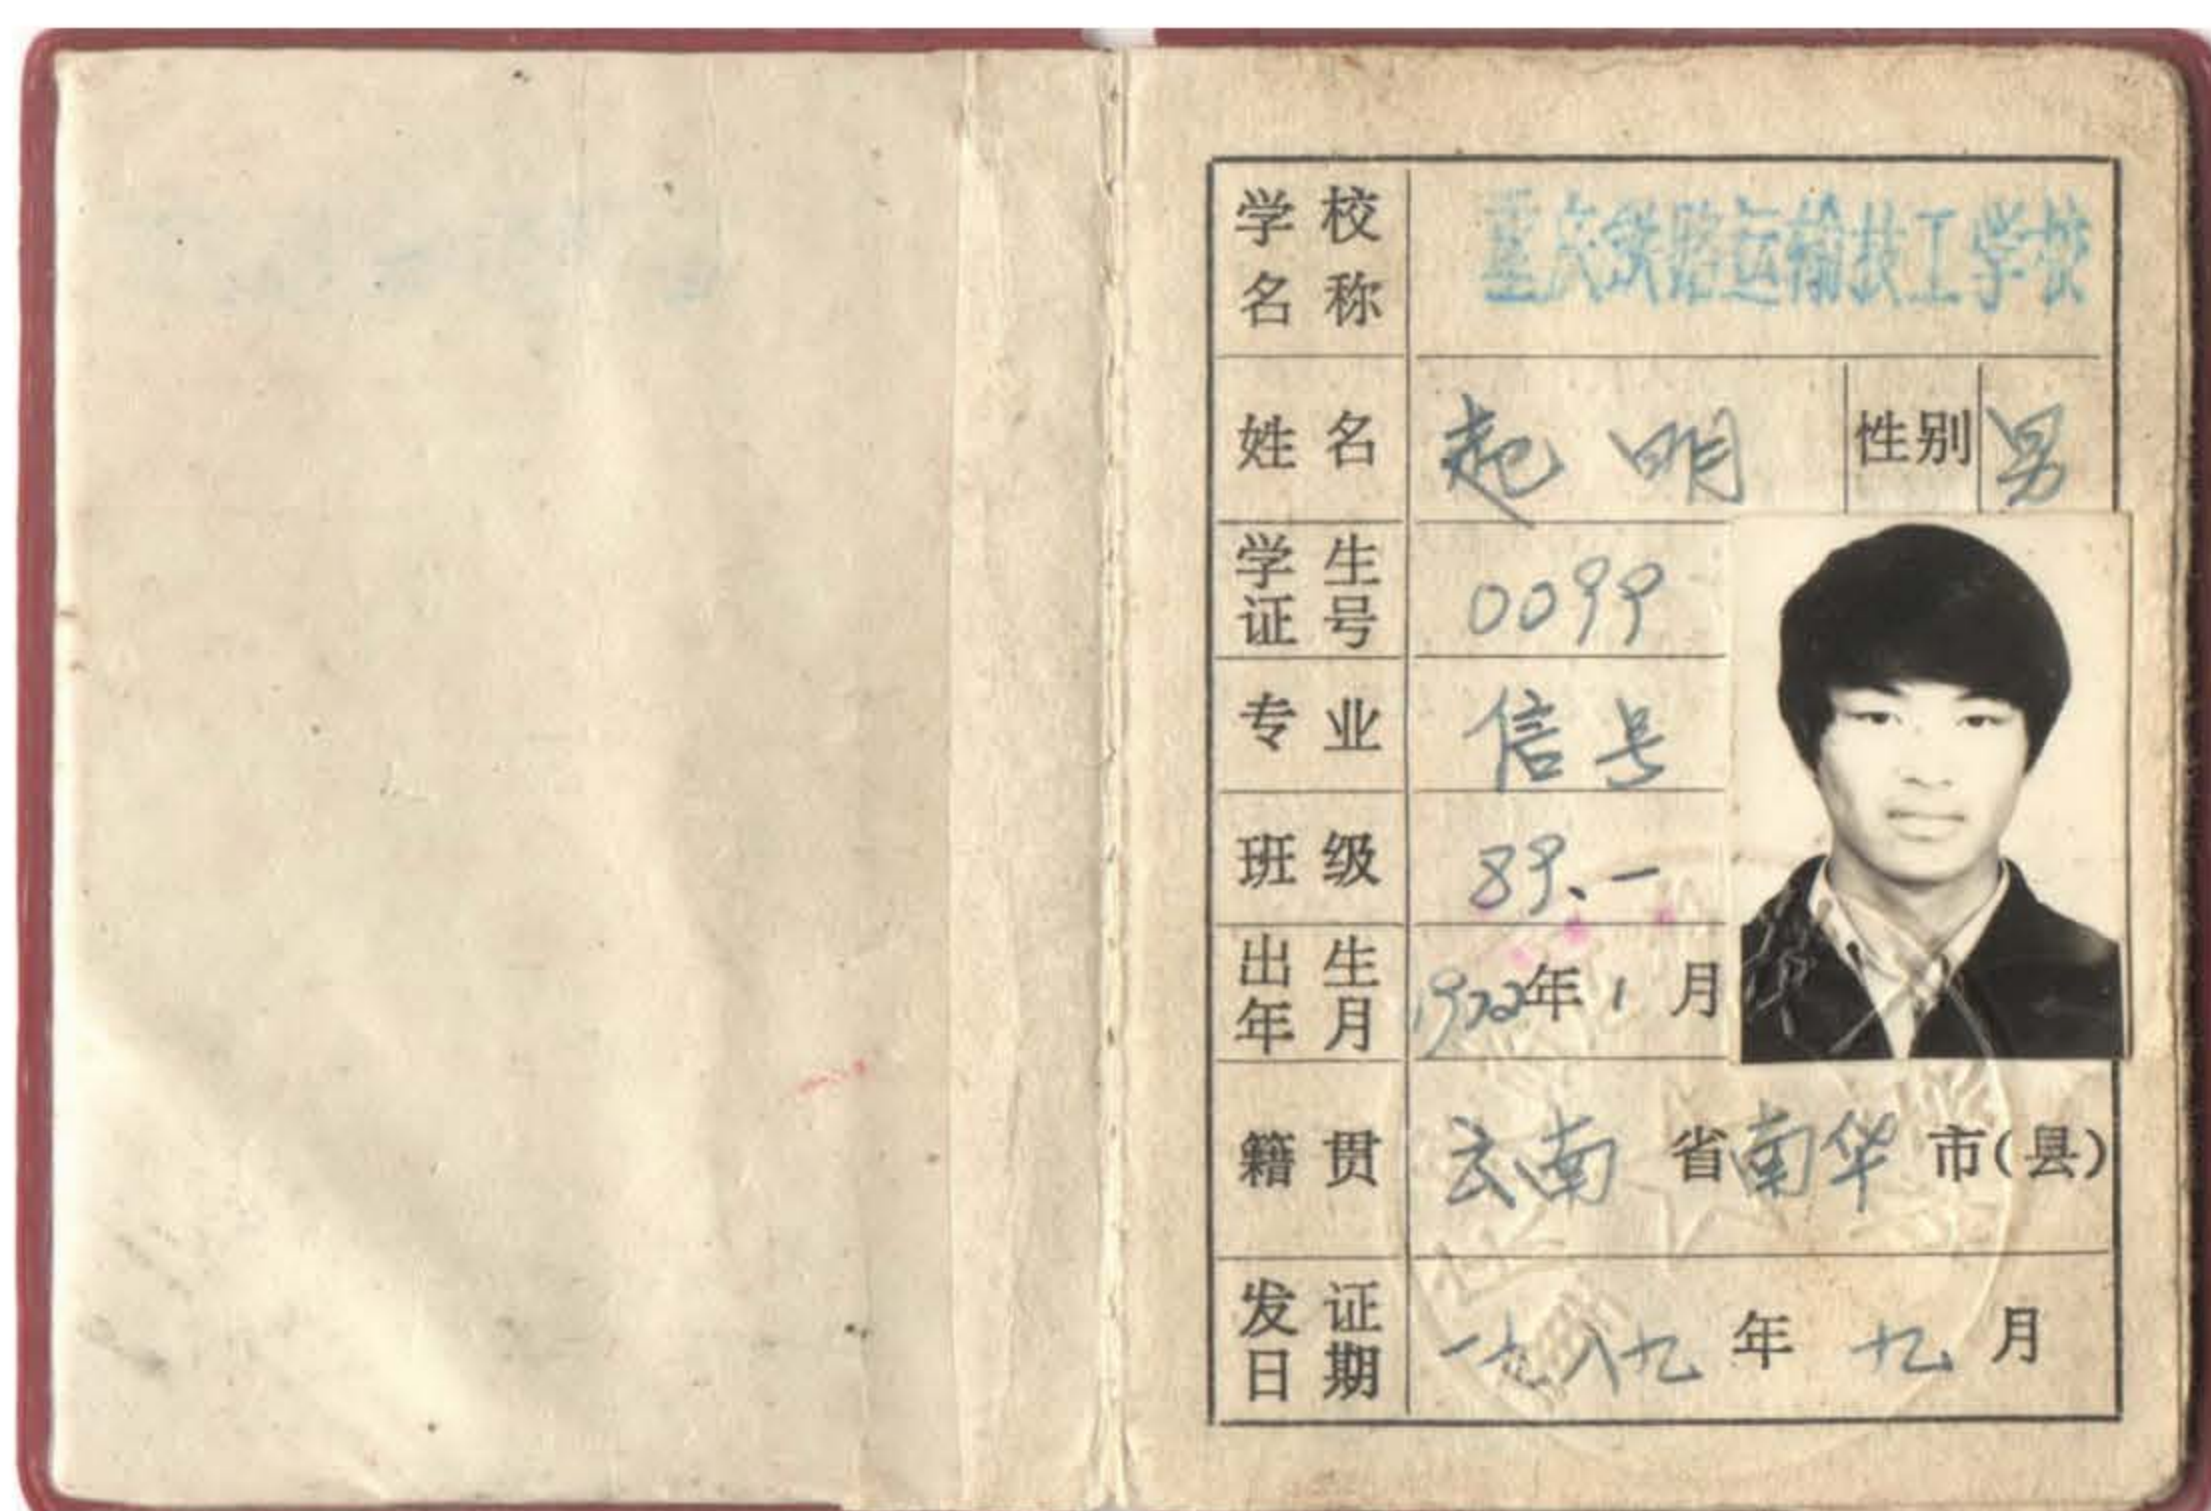 学校名称 重庆铁路运输技工学校
姓名 起明 性别 男
学生证号 0099
专业 信号
班级 89、一
出生年月 1972年1月
籍贯 云南省南华市(县)
发证日期 一九八九年九月